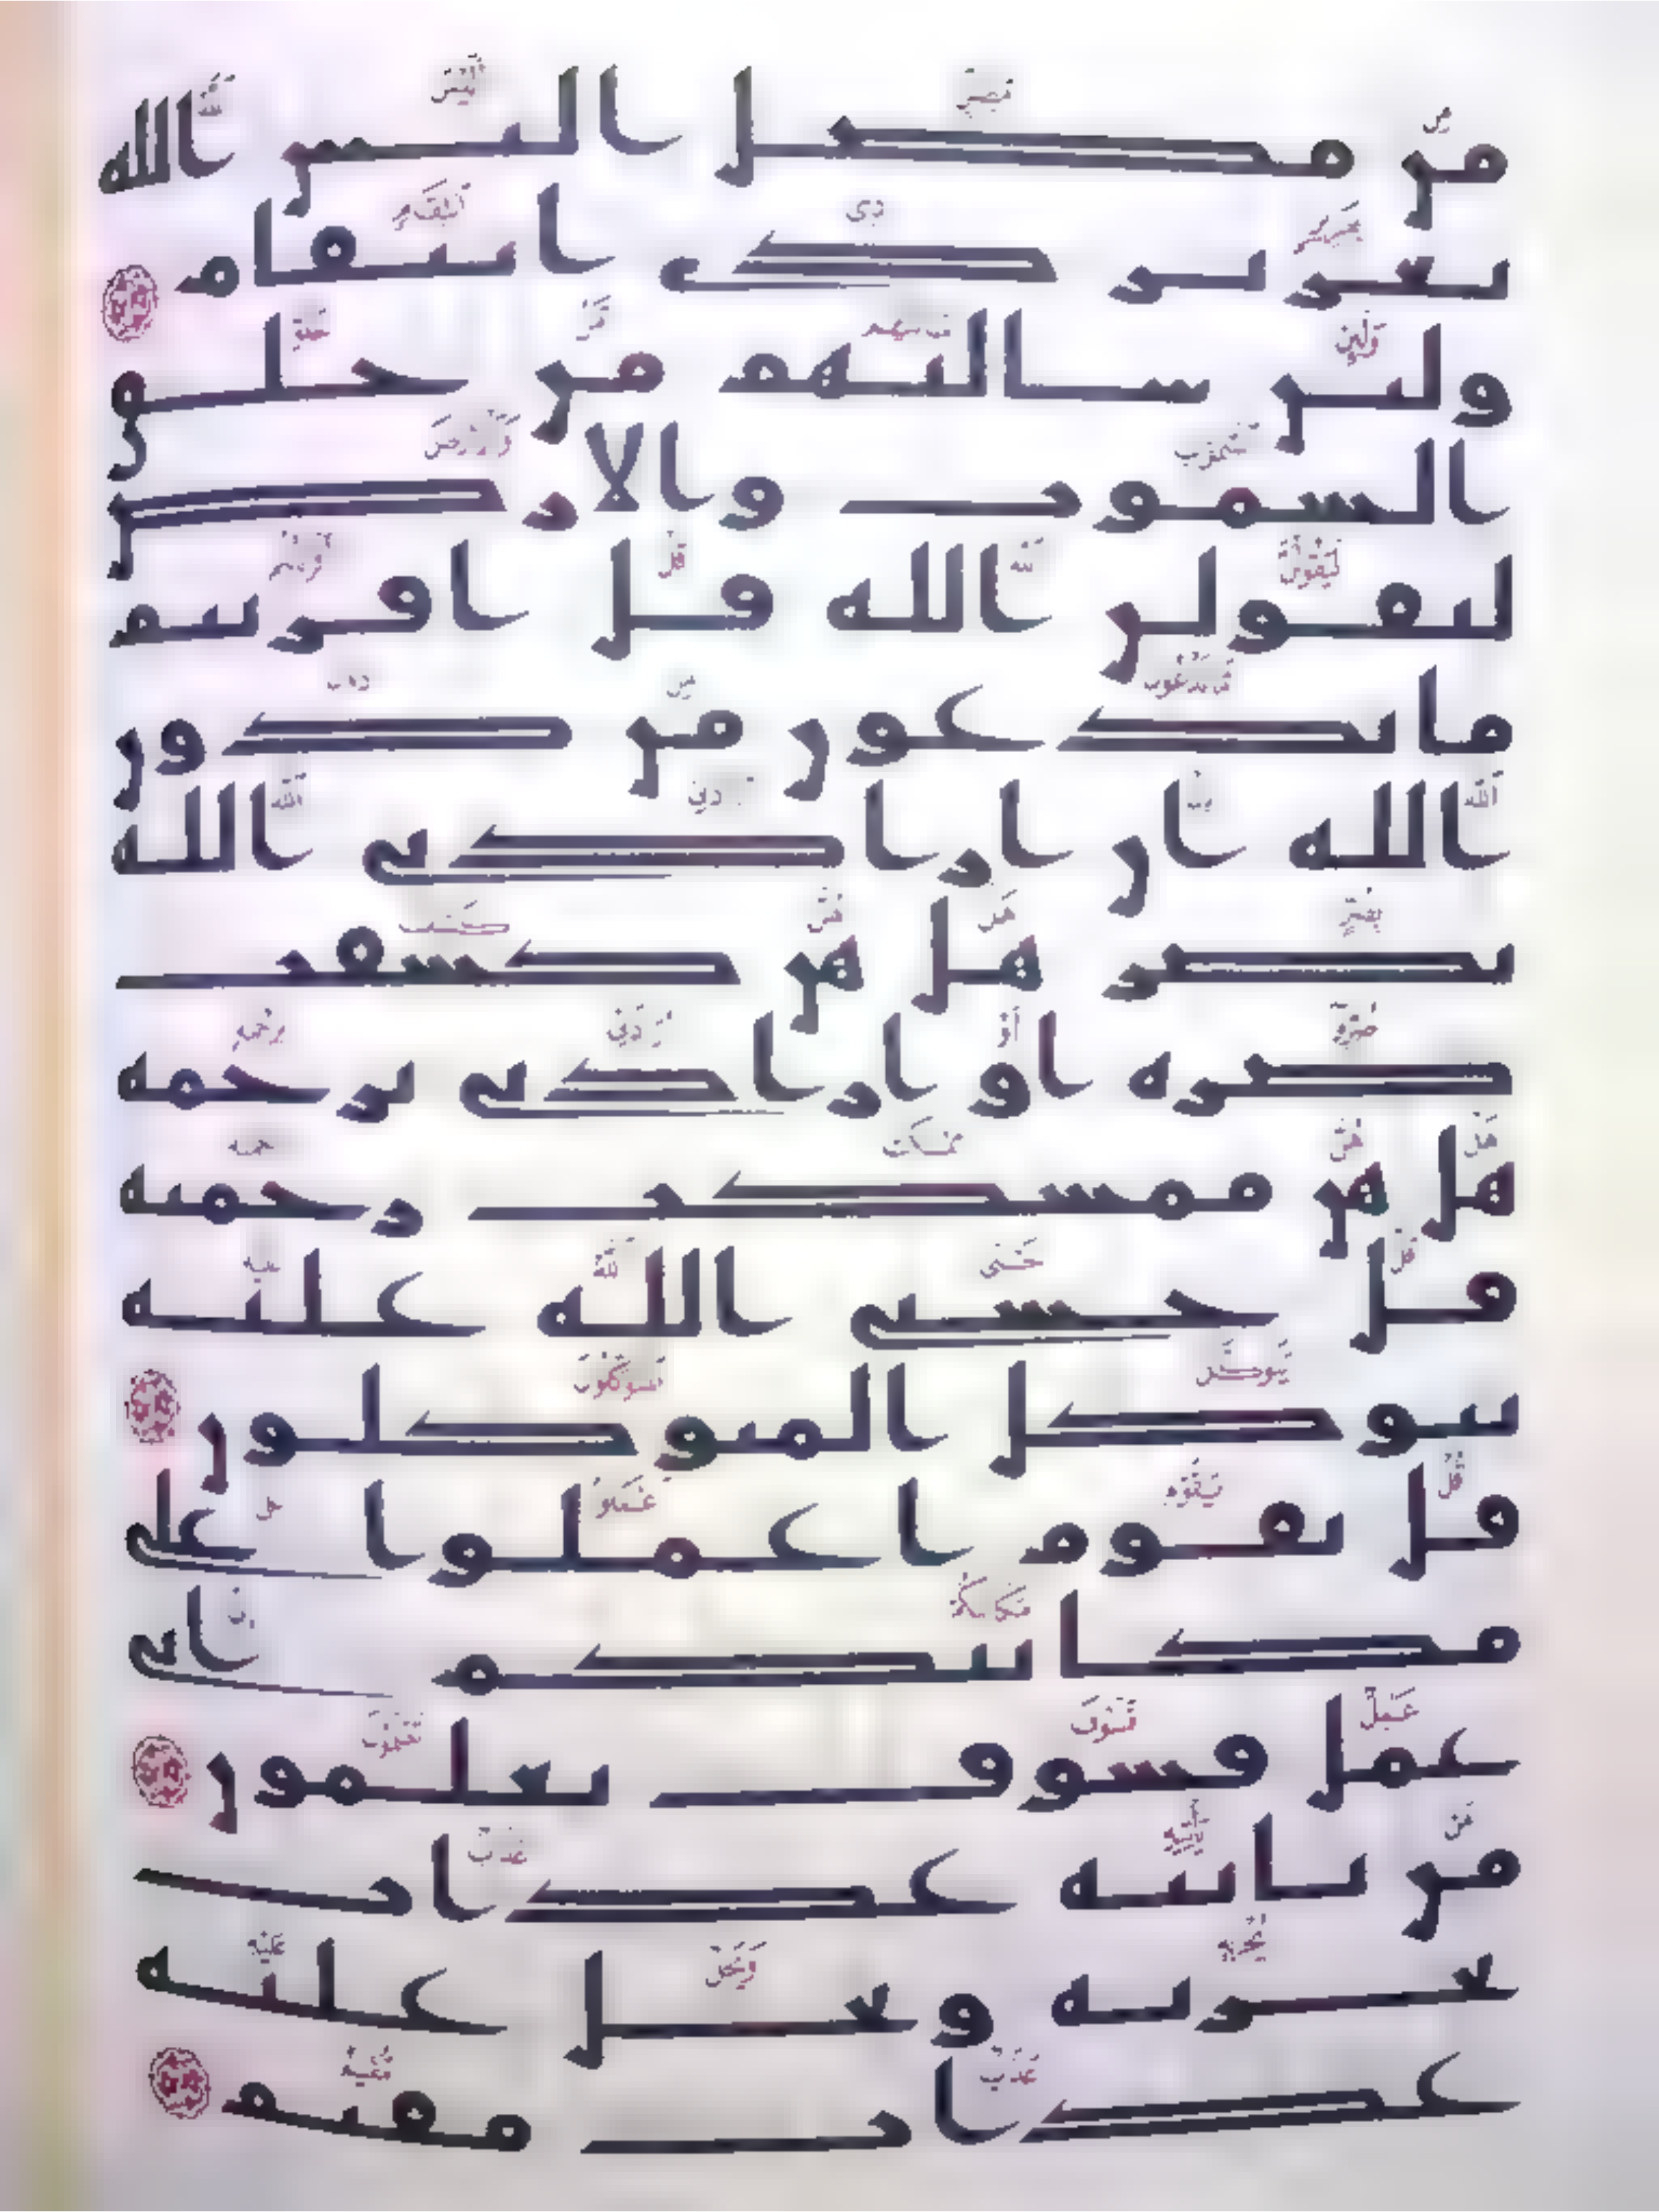 من مضل اليس الله
بعزيز ذي انتقام
ولئن سالتهم من خلق
السموت والارض
ليقولن الله قل افريتم
ما تدعون من دون
الله ان ارادني الله
بضر هل هن كشفت
ضره او ارادني برحمة
هل هن ممسكت رحمته
قل حسبي الله عليه
يتوكل المتوكلون
قل يقوم اعملوا على
مكانتكم اني
عمل فسوف تعلمون
من ياتيه عذاب
يخزيه ويحل عليه
عذاب مقيم